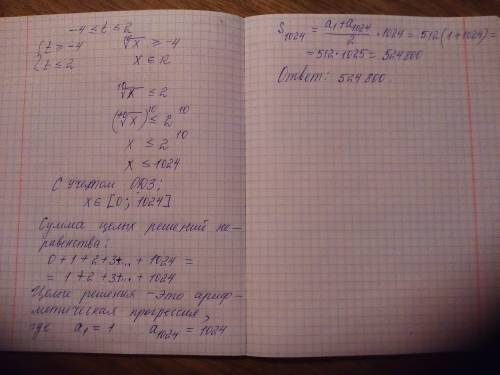 -4 ≤ t ≤ 2
{ t ≥ -4      ¹⁰√x ≥ -4
{ t ≤ 2      x ∈ R
¹⁰√x ≤ 2
(¹⁰√x)¹⁰ ≤ 2¹⁰
x ≤ 2¹⁰
x ≤ 1024
С учётом ОДЗ:
x ∈ [0; 1024]
Сумма целых решений не-
равенства:
0+1+2+3+...+1024 =
= 1+2+3+...+1024
Целые решения - это ариф-
метическая прогрессия,
где a₁ = 1      a₁₀₂₄ = 1024
S₁₀₂₄ = (a₁+a₁₀₂₄)/2 · 1024 = 512(1+1024) =
= 512·1025 = 524800
Ответ: 524800